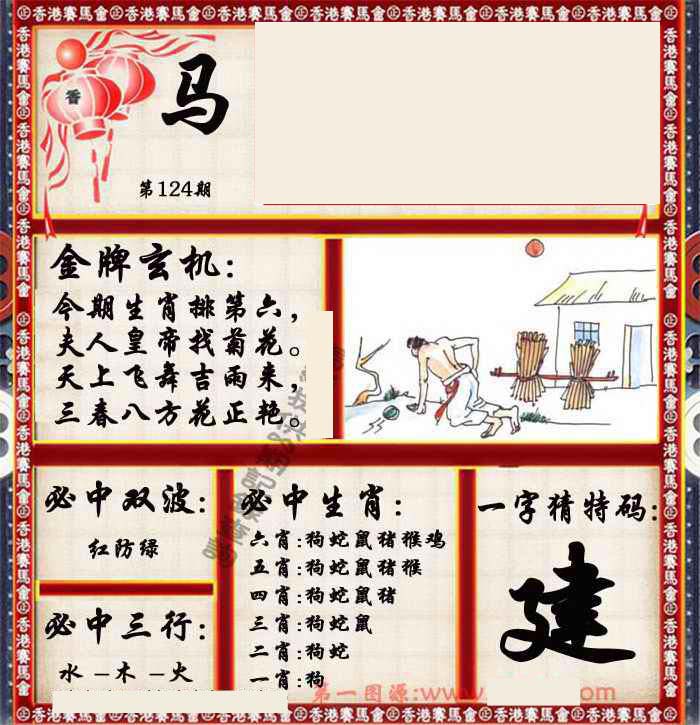 香港賽馬會 正 香港賽馬會 正 香港賽馬會 正 香港賽馬會 正 香港賽馬會 正 香港賽馬會 正 香港賽馬會
香
马
第124期
金牌玄机:
今期生肖排第六,
夫人皇帝找菊花。
天上飞舞吉雨来,
三春八方花正艳。
必中双波:
红防绿
必中三行:
水-木-火
必中生肖:
六肖:狗蛇鼠猪猴鸡
五肖:狗蛇鼠猪猴
四肖:狗蛇鼠猪
三肖:狗蛇鼠
二肖:狗蛇
一肖:狗
一字猜特码:
建
第一图源:www. om